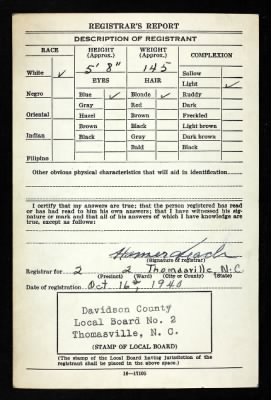 REGISTRAR'S REPORT
DESCRIPTION OF REGISTRANT
RACE HEIGHT (Approx.) WEIGHT (Approx.) COMPLEXION
5' 8" 145 Sallow
White ✓ EYES HAIR Light ✓
Negro Blue ✓ Blonde ✓ Ruddy
Gray Red Dark
Oriental Hazel Brown Freckled
Brown Black Light brown
Indian Black Gray Dark brown
Bald Black
Filipino
Other obvious physical characteristics that will aid in identification
I certify that my answers are true; that the person registered has read
or has had read to him his own answers; that I have witnessed his sig-
nature or mark and that all of his answers of which I have knowledge are
true, except as follows:
Homer Leach
(Signature of registrar)
Registrar for 2 2 Thomasville, N.C.
(Precinct) (Ward) (City or County) (State)
Date of registration Oct. 16, 1940
Davidson County
Local Board No. 2
Thomasville, N. C.
(STAMP OF LOCAL BOARD)
(The stamp of the Local Board having jurisdiction of the
registrant shall be placed in the above space.)
16—17105